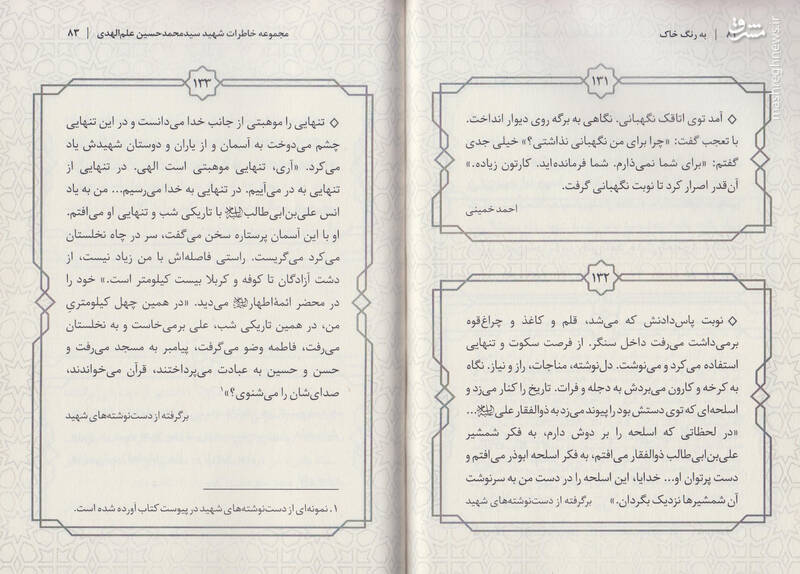 ۸ | به رنگ خاک
مشرق
mashreghnews.ir
۱۳۱
◇ آمد توی اتاقک نگهبانی. نگاهی به برگه روی دیوار انداخت.
با تعجب گفت: «چرا برای من نگهبانی نذاشتی؟» خیلی جدی
گفتم: «برای شما نمی‌ذارم. شما فرمانده‌اید. کارتون زیاده.»
آن‌قدر اصرار کرد تا نوبت نگهبانی گرفت.
احمد خمینی
۱۳۲
◇ نوبت پاس‌دادنش که می‌شد، قلم و کاغذ و چراغ‌قوه
برمی‌داشت می‌رفت داخل سنگر. از فرصت سکوت و تنهایی
استفاده می‌کرد و می‌نوشت. دل‌نوشته، مناجات، راز و نیاز. نگاه
به کرخه و کارون می‌بردش به دجله و فرات. تاریخ را کنار می‌زد و
اسلحه‌ای که توی دستش بود را پیوند می‌زد به ذوالفقار علی...
«در لحظاتی که اسلحه را بر دوش دارم، به فکر شمشیر
علی‌بن‌ابی‌طالب ذوالفقار می‌افتم، به فکر اسلحه ابوذر می‌افتم و
دست پرتوان او... خدایا، این اسلحه را در دست من به سرنوشت
آن شمشیرها نزدیک بگردان.» برگرفته از دست‌نوشته‌های شهید
مجموعه خاطرات شهید سیدمحمدحسین علم‌الهدی | ۸۳
۱۳۳
◇ تنهایی را موهبتی از جانب خدا می‌دانست و در این تنهایی
چشم می‌دوخت به آسمان و از یاران و دوستان شهیدش یاد
می‌کرد. «آری، تنهایی موهبتی است الهی. در تنهایی از
تنهایی به در می‌آییم. در تنهایی به خدا می‌رسیم... من به یاد
انس علی‌بن‌ابی‌طالب با تاریکی شب و تنهایی او می‌افتم.
او با این آسمان پرستاره سخن می‌گفت، سر در چاه نخلستان
می‌کرد می‌گریست. راستی فاصله‌اش با من زیاد نیست، از
دشت آزادگان تا کوفه و کربلا بیست کیلومتر است.» خود را
در محضر ائمهٔ اطهار می‌دید. «در همین چهل کیلومتریِ
من، در همین تاریکی شب، علی برمی‌خاست و به نخلستان
می‌رفت، فاطمه وضو می‌گرفت، پیامبر به مسجد می‌رفت و
حسن و حسین به عبادت می‌پرداختند، قرآن می‌خواندند،
صدای‌شان را می‌شنوی؟»۱
برگرفته از دست‌نوشته‌های شهید
۱. نمونه‌ای از دست‌نوشته‌های شهید در پیوست کتاب آورده شده است.